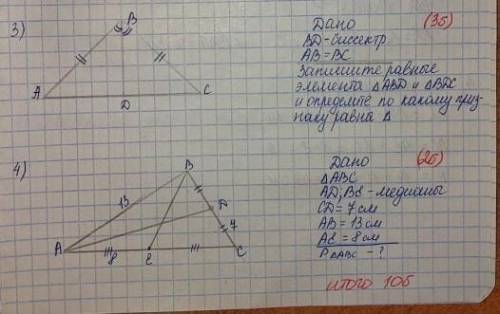 3)
B
A
D
C
Дано (3б)
BD-биссектр
AB=BC
Запишите равные
элемента ΔABD и ΔBDC
и определте по какому приз-
наку равна Δ
4)
B
13
D
7
A
8
E
C
Дано (2б)
ΔABC
AD; BE - медианы
CD = 7 см
AB = 13 см
AE = 8 см
PΔABC - ?
итого 10б